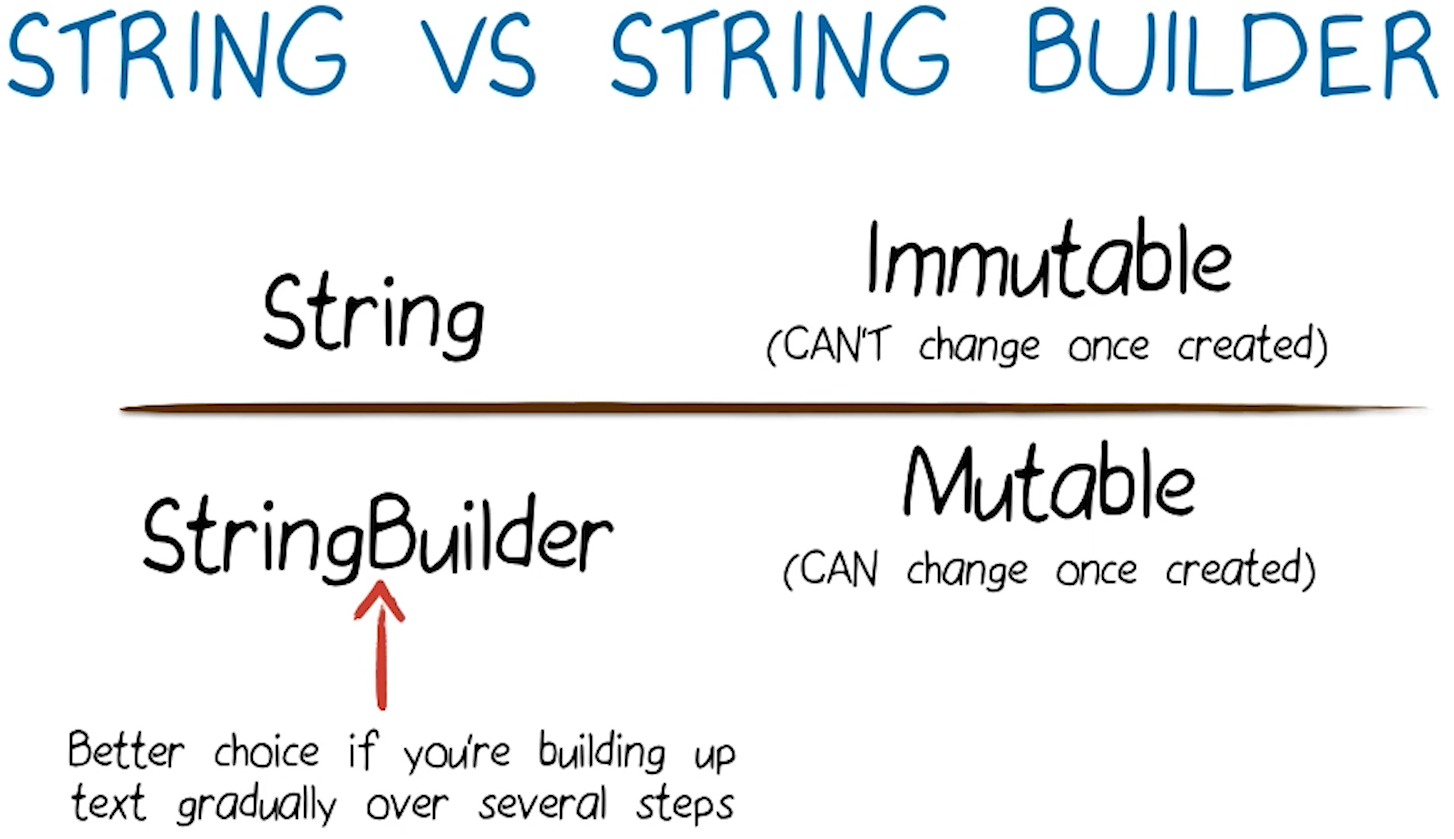 STRING VS STRING BUILDER
String
Immutable
(CAN'T change once created)
StringBuilder
Mutable
(CAN change once created)
Better choice if you're building up
text gradually over several steps